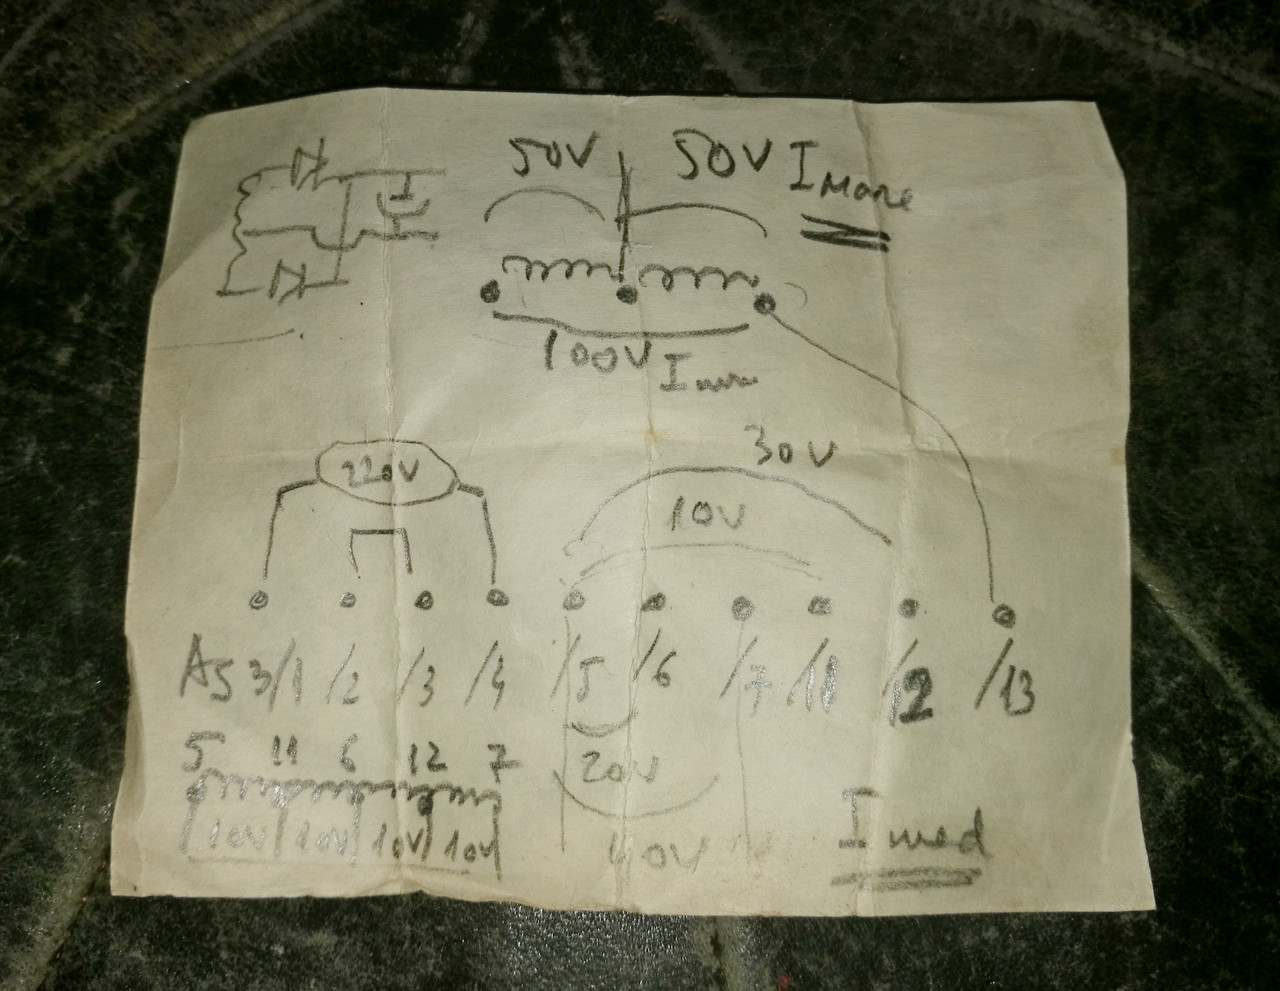 50V 50V I MARE
100V I
220V
30V
10V
A5 3/1 /2 /3 /4 /5 /6 /7 /11 /12 /13
5 11 6 12 7
20V
10V 10V 10V 10V
40V
I med